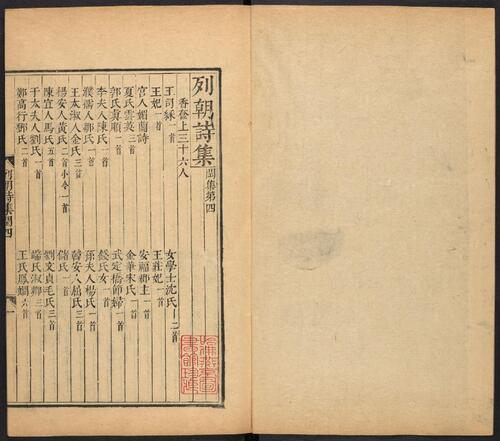 列朝詩集 閏集第四
香奩上三十六人
王司綵一首
女學士沈氏十二首
王妃一首
王莊妃一首
宮人媚蘭詩
安福郡主一首
夏氏雲英三首
金華宋氏一首
郭氏貞順一首
武定橋師婦一首
李夫人陳氏一首
錢氏女一首
濮孺人鄒氏一首
孫夫人楊氏一首
王太淑人金氏三首
鄒安人屈氏三首
楊安人黃氏二首小令一首
儲氏一首
陳宜人馬氏五首
劉文貞毛氏三首
于太夫人劉氏一首
端氏淑卿三首
鄭高行鄧氏二首
王氏鳳嫻六首
列朝詩集閏四
一